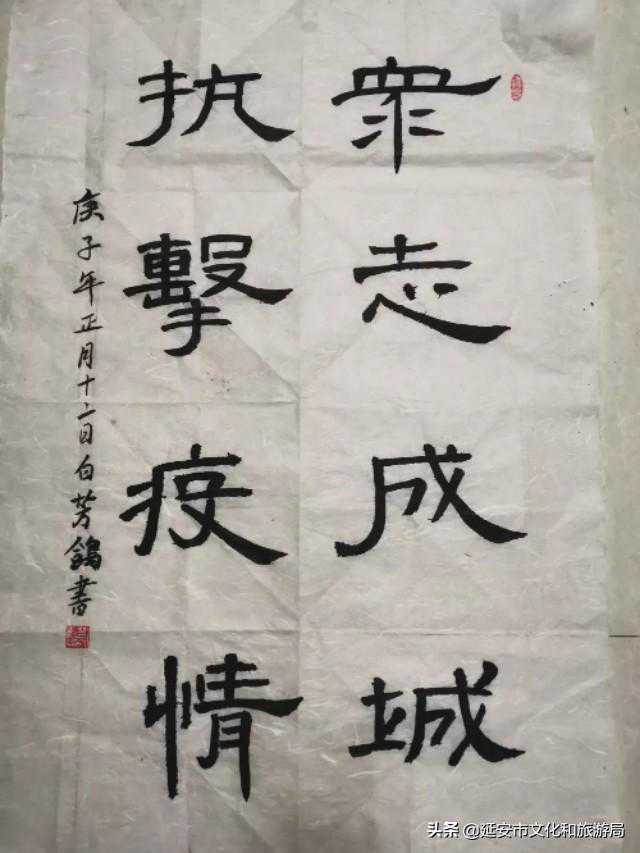 眾志成城
抗擊疫情
庚子年正月十二日白芳鴿書
头条 @延安市文化和旅游局